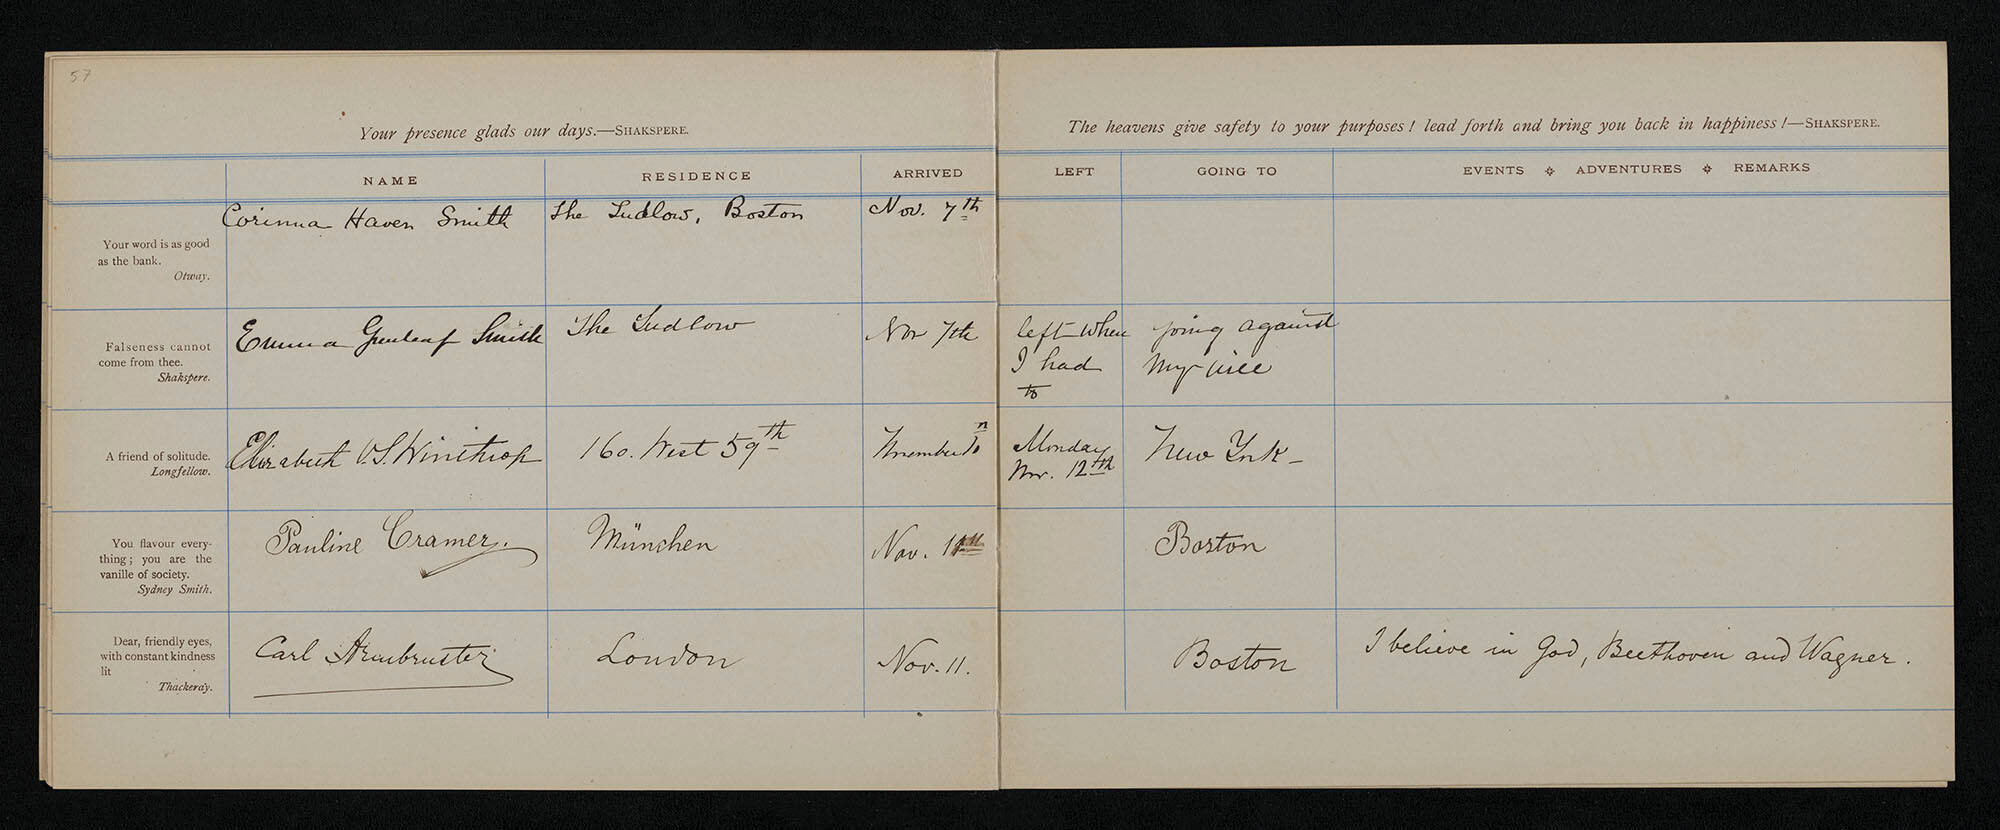 57
Your presence glads our days.—SHAKSPERE.
The heavens give safety to your purposes! lead forth and bring you back in happiness!—SHAKSPERE.
NAME RESIDENCE ARRIVED LEFT GOING TO EVENTS ADVENTURES REMARKS
Corinna Haven Smith The Ludlow, Boston Nov. 7th
Your word is as good
as the bank.
Otway.
Emma Greenleaf Smith The Ludlow Nov 7th left when going against
I had my will
to
Falseness cannot
come from thee.
Shakspere.
Elizabeth V.S. Winthrop 160. West 59th November Monday New York
Nov. 12th
A friend of solitude.
Longfellow.
Pauline Cramer. München Nov. Boston
You flavour every-
thing; you are the
vanille of society.
Sydney Smith.
Carl Armbruster London Nov. 11. Boston I believe in God, Beethoven and Wagner.
Dear, friendly eyes,
with constant kindness
lit
Thackeray.